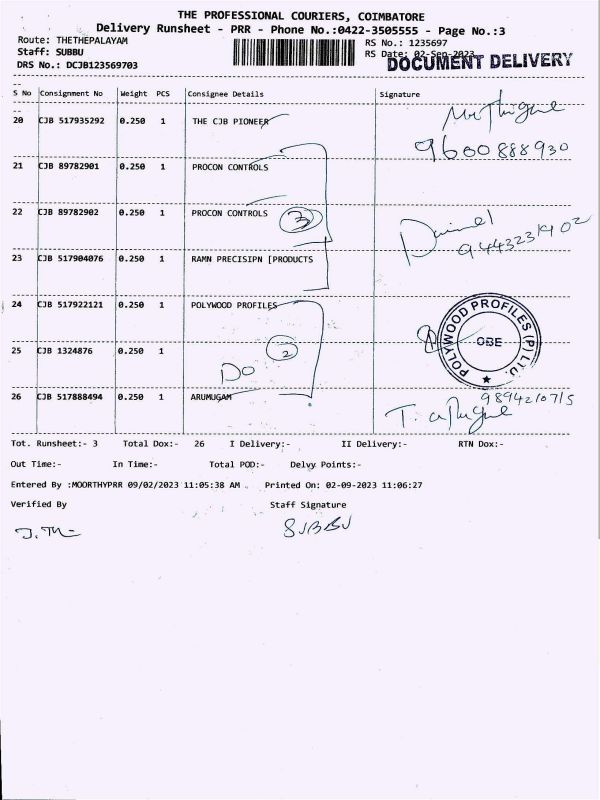 THE PROFESSIONAL COURIERS, COIMBATORE
Delivery Runsheet - PRR - Phone No.:0422-3505555 - Page No.:3
Route: THETHEPALAYAM
RS No.: 1235697
Staff: SUBBU
RS Date: 02-Sep-2023
DOCUMENT DELIVERY
DRS No.: DCJB123569703
S No Consignment No Weight PCS Consignee Details Signature
20 CJB 517935292 0.250 1 THE CJB PIONEER
9600888930
21 CJB 89782901 0.250 1 PROCON CONTROLS
22 CJB 89782902 0.250 1 PROCON CONTROLS 3
23 CJB 517904076 0.250 1 RAMN PRECISIPN [PRODUCTS
24 CJB 517922121 0.250 1 POLYWOOD PROFILES
POLYWOOD PROFILES (P) LTD.
CBE
25 CJB 1324876 0.250 1 2
Do
26 CJB 517888494 0.250 1 ARUMUGAM
9894210715
Tot. Runsheet:- 3 Total Dox:- 26 I Delivery:- II Delivery:- RTN Dox:-
Out Time:- In Time:- Total POD:- Delvy Points:-
Entered By :MOORTHYPRR 09/02/2023 11:05:38 AM . Printed On: 02-09-2023 11:06:27
Verified By Staff Signature
SUBBU